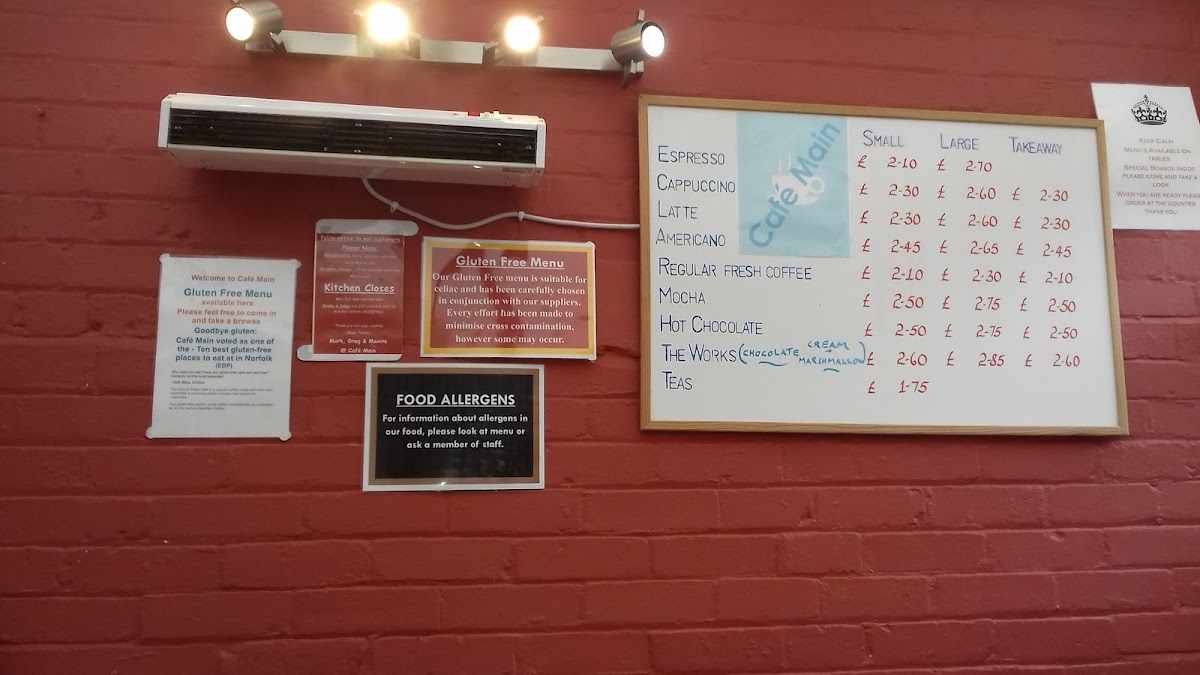 Welcome to Café Main
Gluten Free Menu
available here
Please feel free to come in
and take a browse
Goodbye gluten:
Café Main voted as one of
the - Ten best gluten-free
places to eat at in Norfolk
(EDP)
Please notice to our customers
Please Note:
Kitchen Closes
Thank you for your custom
Many Thanks
Mark, Greg & Maxine
@ Café Main
Gluten Free Menu
Our Gluten Free menu is suitable for
celiac and has been carefully chosen
in conjunction with our suppliers.
Every effort has been made to
minimise cross contamination,
however some may occur.
FOOD ALLERGENS
For information about allergens in
our food, please look at menu or
ask a member of staff.
Café Main
SMALL LARGE TAKEAWAY
ESPRESSO £ 2-10 £ 2-70
CAPPUCCINO £ 2-30 £ 2-60 £ 2-30
LATTE £ 2-30 £ 2-60 £ 2-30
AMERICANO £ 2-45 £ 2-65 £ 2-45
REGULAR FRESH COFFEE £ 2-10 £ 2-30 £ 2-10
MOCHA £ 2-50 £ 2-75 £ 2-50
HOT CHOCOLATE £ 2-50 £ 2-75 £ 2-50
THE WORKS (CHOCOLATE CREAM + MARSHMALLOW) £ 2-60 £ 2-85 £ 2-60
TEAS £ 1-75
KEEP CALM
MENU'S AVAILABLE ON
TABLES
SPECIAL BOARDS INSIDE
PLEASE COME AND TAKE A
LOOK
WHEN YOU ARE READY PLEASE
ORDER AT THE COUNTER
THANK YOU